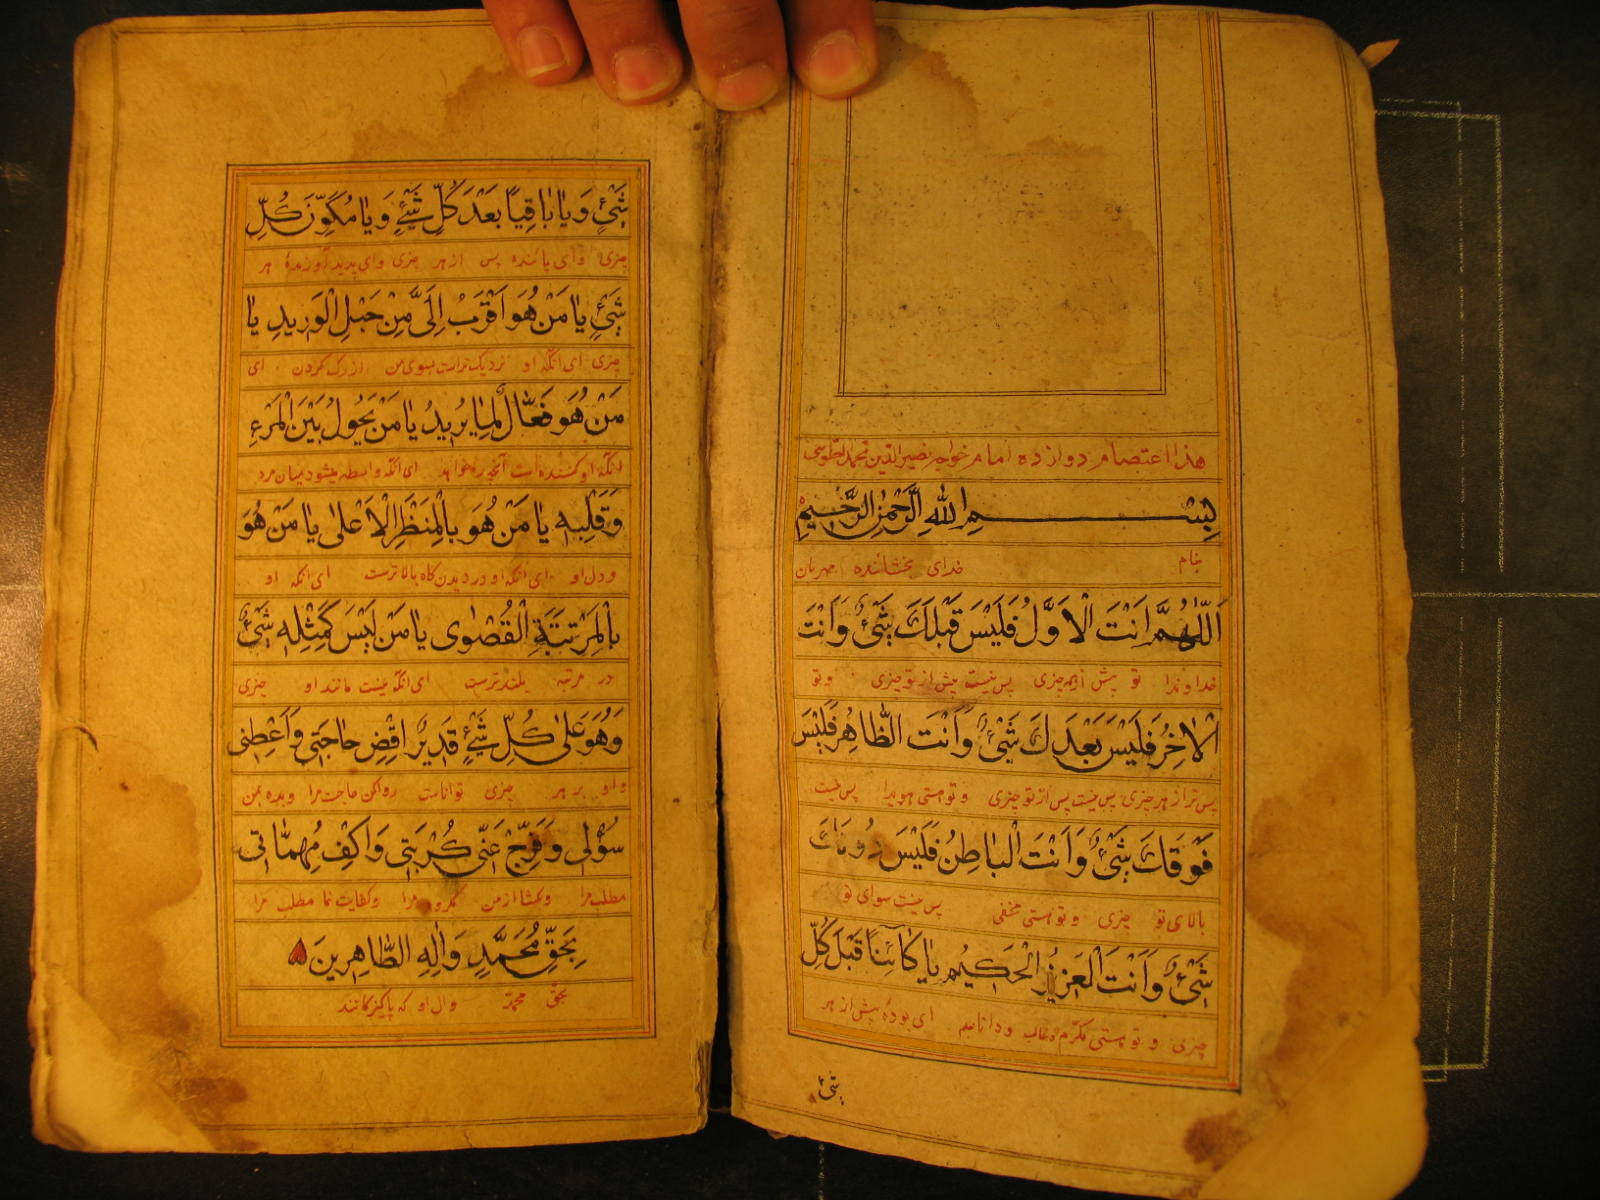 هذا اعتصام دوازده امام خواجه نصیر الدین محمد الطوسی
بِسْمِ اللهِ الرَّحْمٰنِ الرَّحٖيمِ
بنام خدای بخشاینده مهربان
اَللّٰهُمَّ اَنْتَ الْاَوَّلُ فَلَيْسَ قَبْلَكَ شَيْءٌ وَاَنْتَ
خداوندا تو پیش از همه چیزی پس نیست پیش از تو چیزی و تو
الْاٰخِرُ فَلَيْسَ بَعْدَكَ شَيْءٌ وَاَنْتَ الظّٰاهِرُ فَلَيْسَ
پس تر از هر چیزی پس نیست پس از تو چیزی و تو هستی هویدا پس نیست
فَوْقَكَ شَيْءٌ وَاَنْتَ الْبٰاطِنُ فَلَيْسَ دُونَكَ
بالای تو چیزی و تو هستی مخفی پس نیست سوای تو
شَيْءٌ وَاَنْتَ الْعَزيزُ الْحَكيمُ يٰا كٰائِنًا قَبْلَ كُلِّ
چیزی و تو هستی مکرّم و غالب و دانا ای بوده پیش از هر
شيء
شَيْءٍ وَيٰا بٰاقِيًا بَعْدَ كُلِّ شَيْءٍ وَيٰا مُكَوِّنَ كُلِّ
چیزی و ای پاینده پس از هر چیزی و ای پدید آورندهٔ هر
شَيْءٍ يٰا مَنْ هُوَ اَقْرَبُ اِلَيَّ مِنْ حَبْلِ الْوَريدِ يٰا
چیزی ای آنکه او نزدیک تر است بسوی من از رگ گردن ای
مَنْ هُوَ فَعّٰالٌ لِمٰا يُريدُ يٰا مَنْ يَحُولُ بَيْنَ الْمَرْءِ
آنکه او کننده است آنچه را خواهد ای آنکه واسطه میشود میان مرد
وَقَلْبِهٖ يٰا مَنْ هُوَ بِالْمَنْظَرِ الْاَعْلٰى يٰا مَنْ هُوَ
و دل او ای آنکه او در دیدن گاه بالاترست ای آنکه او
بِالْمَرْتَبَةِ الْقُصْوٰى يٰا مَنْ لَيْسَ كَمِثْلِهٖ شَيْءٌ
در مرتبه بلندترست ای آنکه نیست مانند او چیزی
وَهُوَ عَلٰى كُلِّ شَيْءٍ قَديرٌ اقْضِ حٰاجَتٖي وَاَعْطِنٖي
و او بر هر چیزی تواناست روا کن حاجت مرا و بده بمن
سُؤْلٖي وَفَرِّجْ عَنّٖي كُرْبَتٖي وَاكْفِ مُهِمّٰاتٖي
مطلب مرا و بگشا از من مرا و کفایت نما مطلب مرا
بِحَقِّ مُحَمَّدٍ وَاٰلِهِ الطّٰاهِرينَ
بحق محمّد و ال او که پاکیزگانند